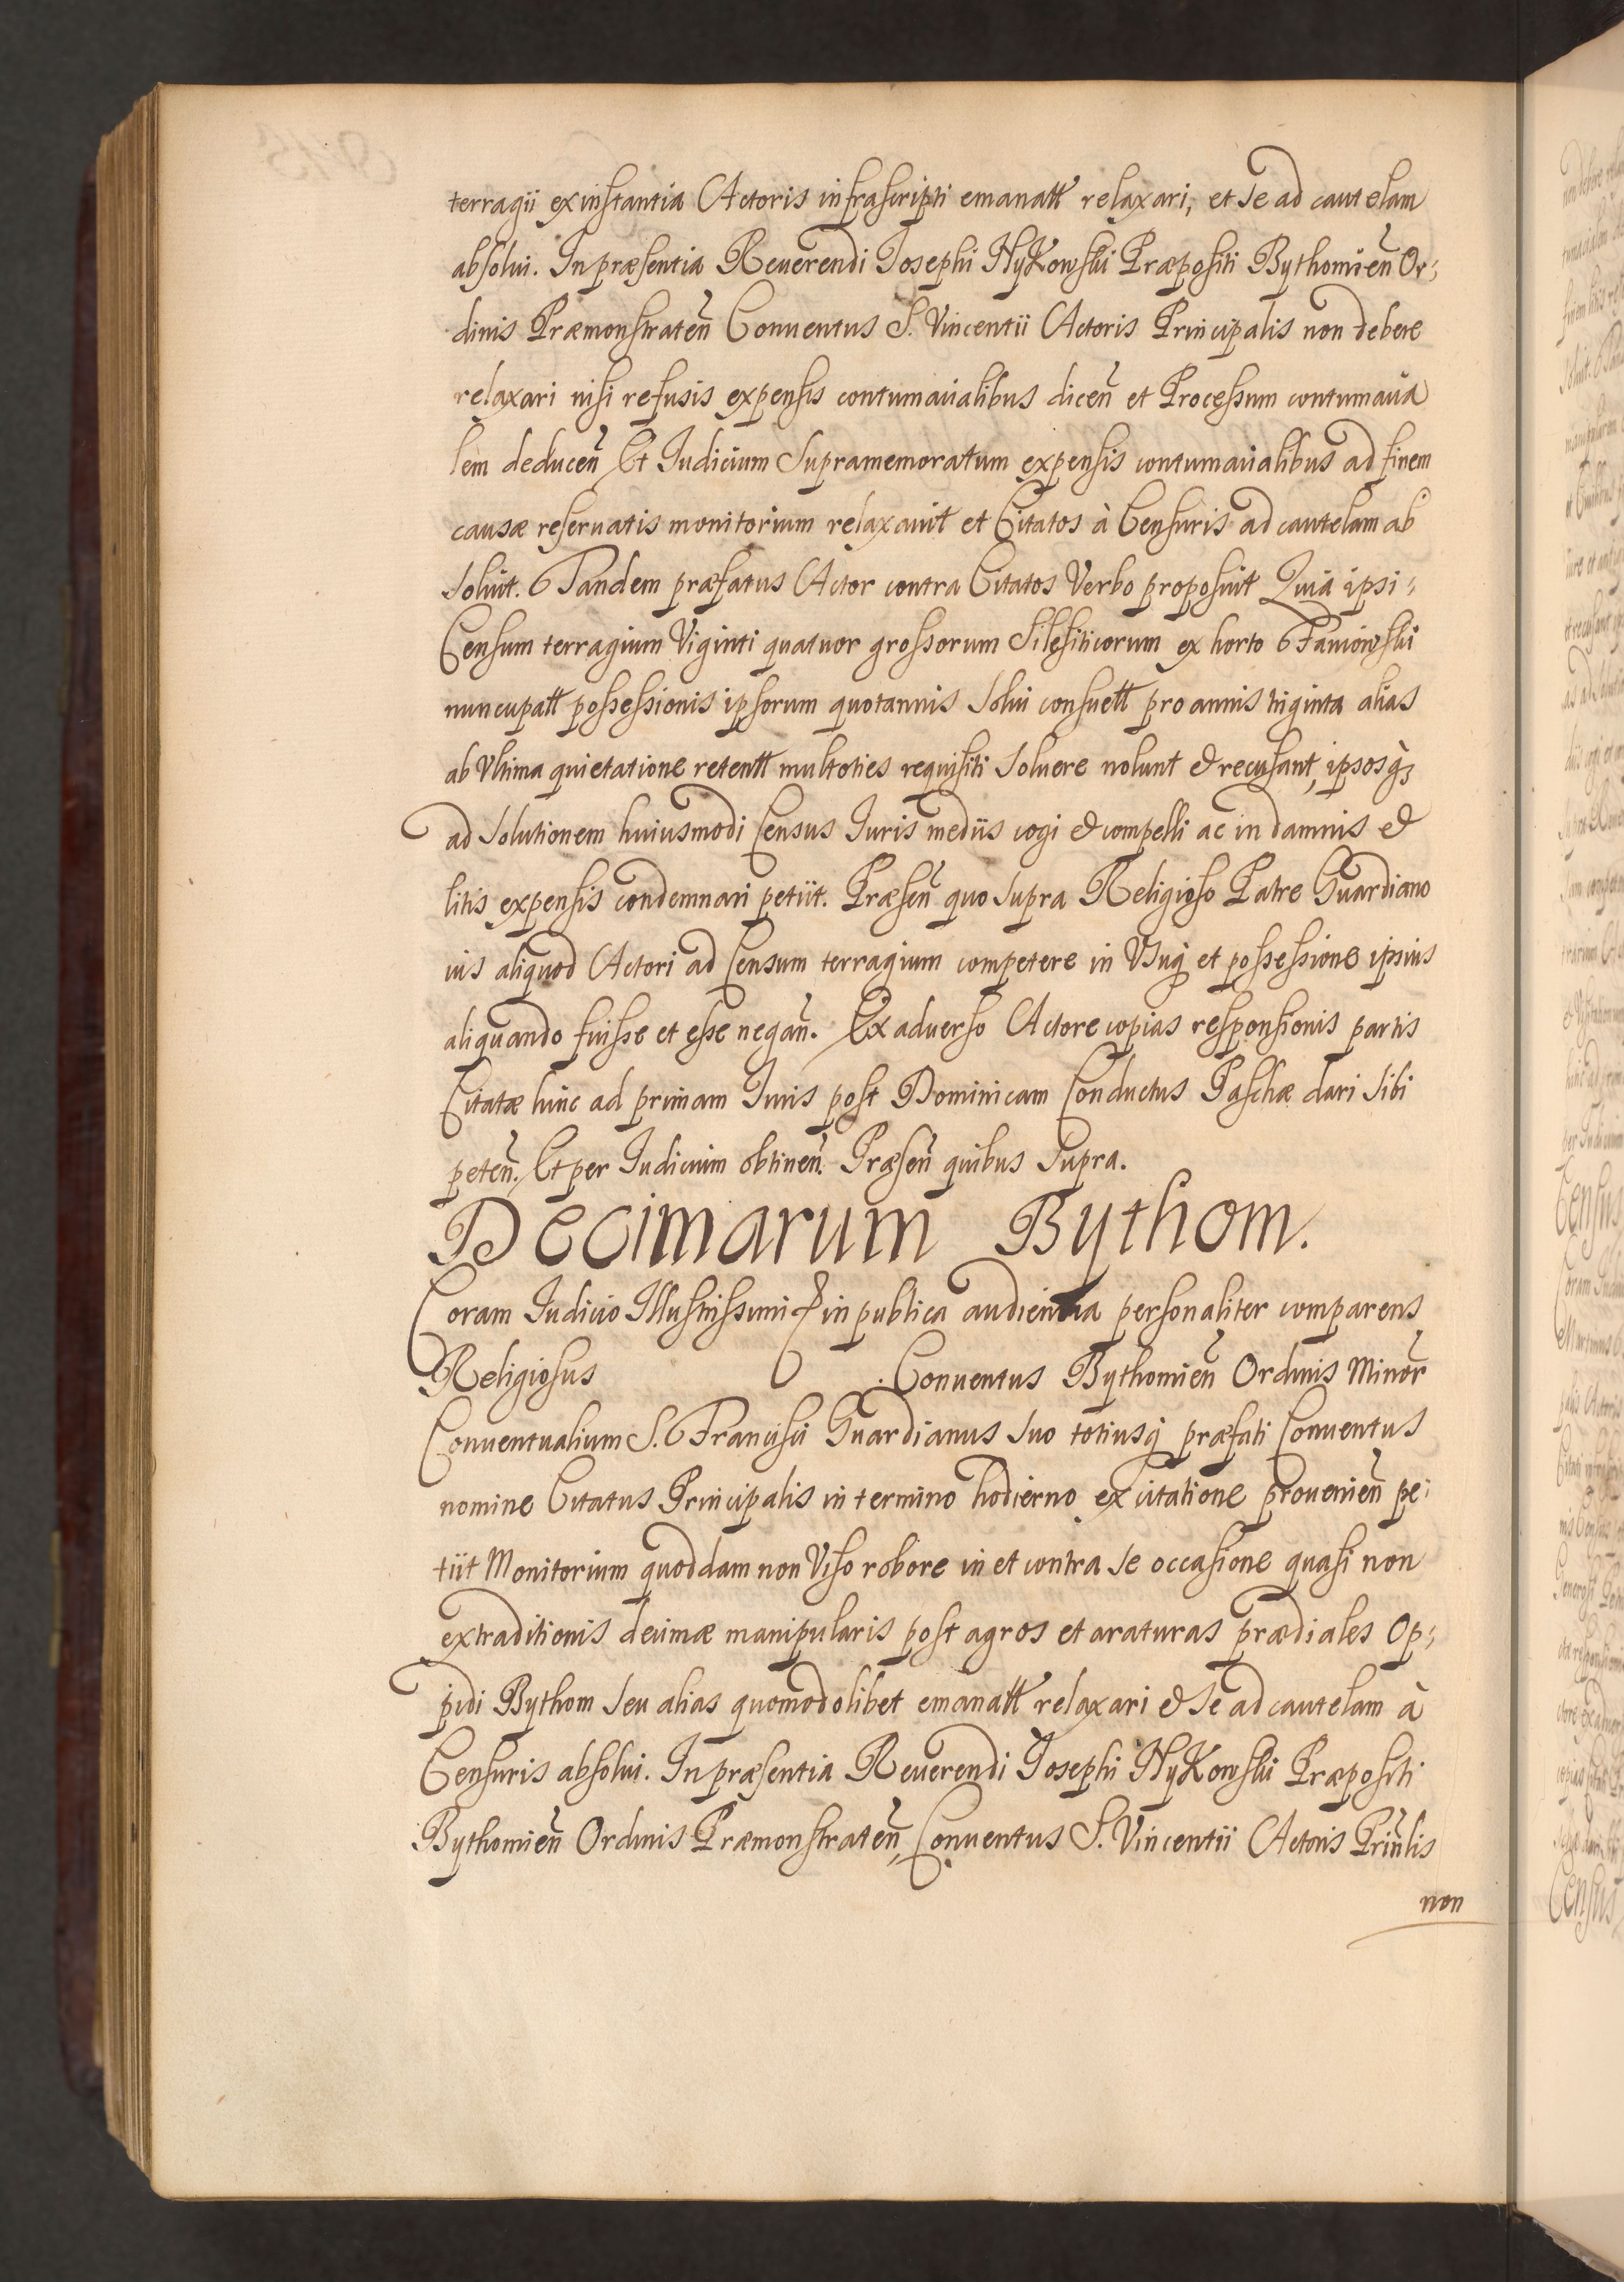 terragii ex instantia Actoris infrascripti emanatt relaxari, et se ad cautelam
absolui. In præsentia Reuerendi Josephi HyKowski Præpositi Bythomien̄ Or-
dinis Præmonstraten̄ Conuentus S. Vincentii Actoris Principalis non debere
relaxari nisi refusis expensis contumacialibus dicen̄ et Processum contumacia
lem deducen̄ Et Judicium Supramemoratum expensis contumacialibus ad finem
causæ reseruatis monitorium relaxauit et Citatos à Censuris ad cautelam ab
soluit. Tandem præfatus Actor contra Citatos Verbo proposuit Quia ipsi
Censum terragium Viginti quatuor grossorum Silesiticorum ex horto
nuncupatt possessionis ipsorum quotannis Solui consuett pro annis triginta alias
ab Vltima quietatione retentt multoties requisiti Soluere nolunt & recusant, ipsosq̃
ad Solutionem huiusmodi Census Juris mediis cogi & compelli ac in damnis &
litis expensis condemnari petiit. Præsen̄ quo supra Religioso Patre Guardiano
ius aliquod Actori ad Censum terragium competere in Vsuq̃ et possessione ipsius
aliquando fuisse et esse negan̄. Ex aduerso Actore copias responsionis partis
Citatæ hinc ad primam Juris post Dominicam Conductus Paschæ dari sibi
peten̄. Et per Judicium obtinen̄. Præsen̄ quibus Supra.
Decimarum Bythom.
Coram Judicio Illustrissimi & in publica audientia personaliter comparens
Religiosus Conuentus Bythomien̄ Ordinis Minor̄
Conuentualium S. Francisci Guardianus suo totiusq̃ præfati Conuentus
nomine Citatus Principalis in termino hodierno ex citatione prouenien̄ pe
tiit Monitorium quoddam non Viso robore in et contra se occasione quasi non
extraditionis decimæ manipularis post agros et araturas prædiales Op-
pidi Bythom seu alias quomodolibet emanatt relaxari & se ad cautelam à
Censuris absolui. In præsentia Reuerendi Josephi HyKowski Præpositi
Bythomien̄ Ordinis Præmonstraten̄, Conuentus S. Vincentii Actoris Prin̄lis
non